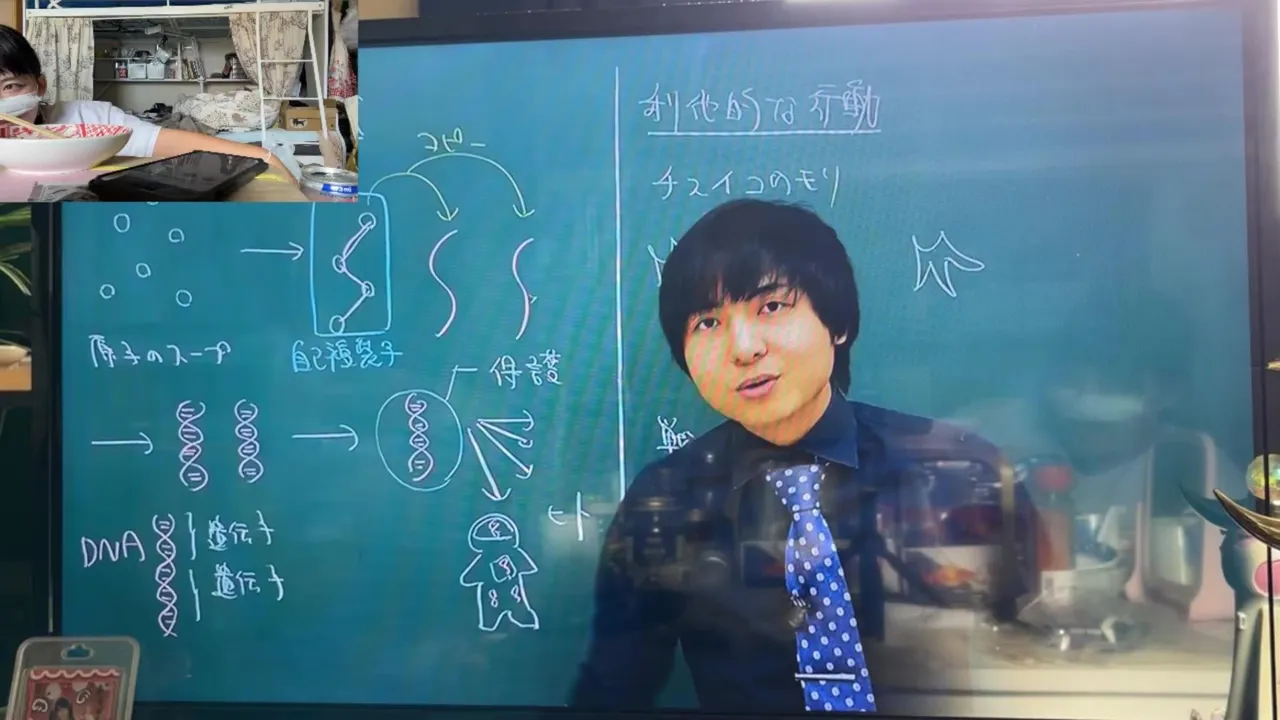 コピー
原子のスープ
自己複製子
保護
DNA
遺伝子
遺伝子
ヒト
利他的な行動
チスイコウモリ